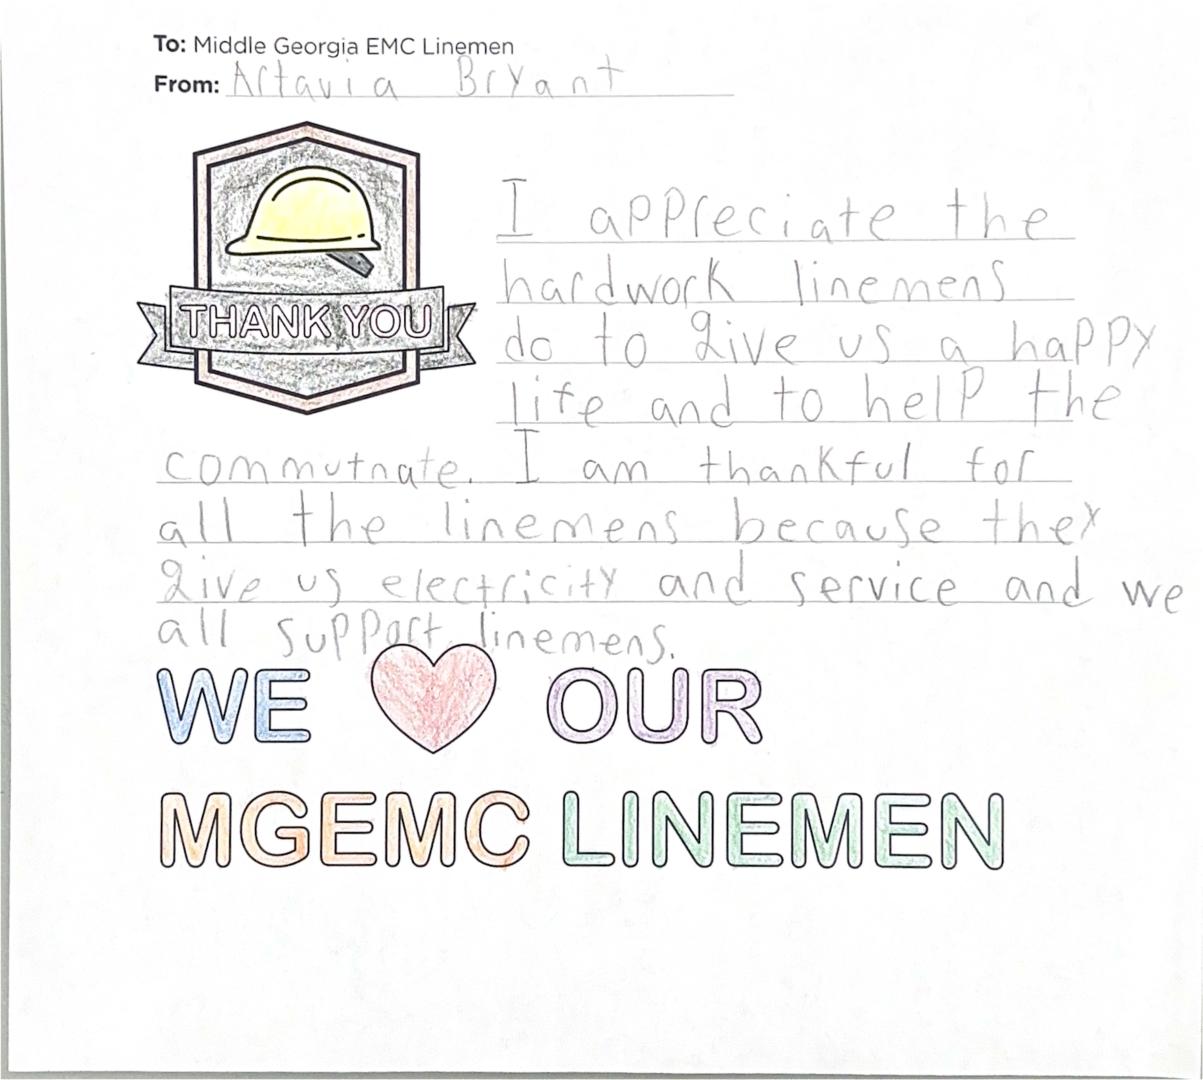 To: Middle Georgia EMC Linemen
From: Artavia Bryant
THANK YOU
I appreciate the
hardwork linemens
do to give us a happy
life and to help the
commutnate. I am thankful for
all the linemens because they
give us electricity and service and we
all support linemens.
WE OUR
MGEMC LINEMEN